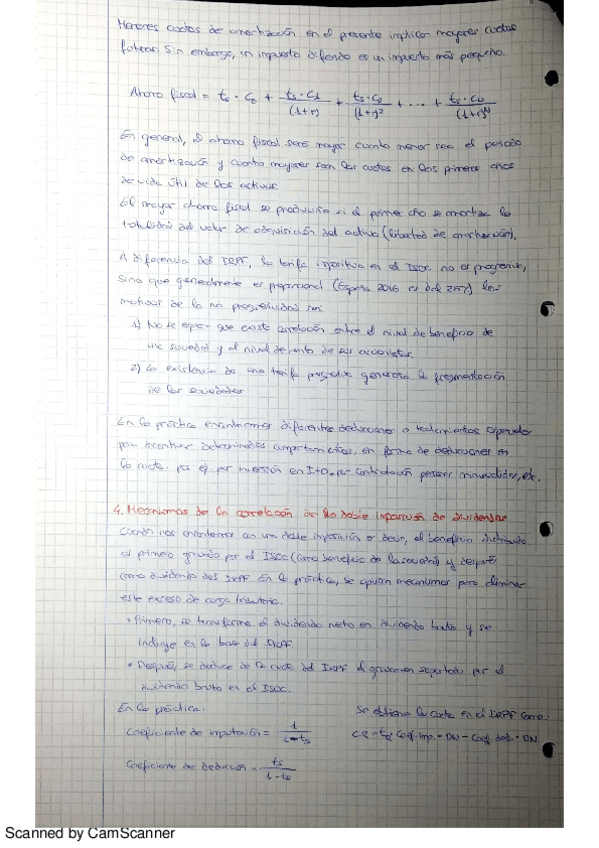 Menores cuotas de amortización en el presente implican mayores cuotas
futuras. Sin embargo, un impuesto diferido es un impuesto más pequeño.
Ahorro fiscal = ts · C0 + ts · C1 / (1+r) + ts · C2 / (1+r)² + ... + ts · CN / (1+r)^N
En general, el ahorro fiscal será mayor cuanto menor sea el periodo
de amortización y cuanto mayores sean las cuotas en los primeros años
de vida útil de los activos.
El mayor ahorro fiscal se produciría si el primer año se amortiza la
totalidad del valor de adquisición del activo (libertad de amortización).
A diferencia del IRPF, la tarifa impositiva en el ISOC no es progresiva,
sino que generalmente es proporcional (España 2016 es del 25%). Los
motivos de la no progresividad son:
1) No se espera que exista correlación entre el nivel de beneficio de
una sociedad y el nivel de renta de sus accionistas.
2) La existencia de una tarifa progresiva generaría la fragmentación
de las sociedades
En la práctica encontramos diferentes deducciones o tratamientos especiales
para incentivar determinados comportamientos, en forma de deducciones en
la cuota. por ej. por inversión en I+D, por contratación personas minusválidas, etc.
4. Mecanismos de la corrección de la doble imposición de dividendos
Cuando nos encontramos con una doble imposición es decir, el beneficio distribuido
es primero gravado por el ISOC (como beneficio de la sociedad) y después
como dividendo del IRPF. En la práctica, se aplican mecanismos para eliminar
este exceso de carga tributaria.
• Primero, se transforma el dividendo neto en dividendo bruto y se
incluye en la base del IRPF.
• Después, se deduce de la cuota del IRPF el gravamen soportado por el
dividendo bruto en el ISOC.
En la práctica:
Coeficiente de imputación = 1 / 1-ts
Coeficiente de deducción = ts / 1-ts
Se obtiene la cuota en el IRPF como:
CR = tR · Coef. imp. · DN - Coef. ded. · DN
Scanned by CamScanner